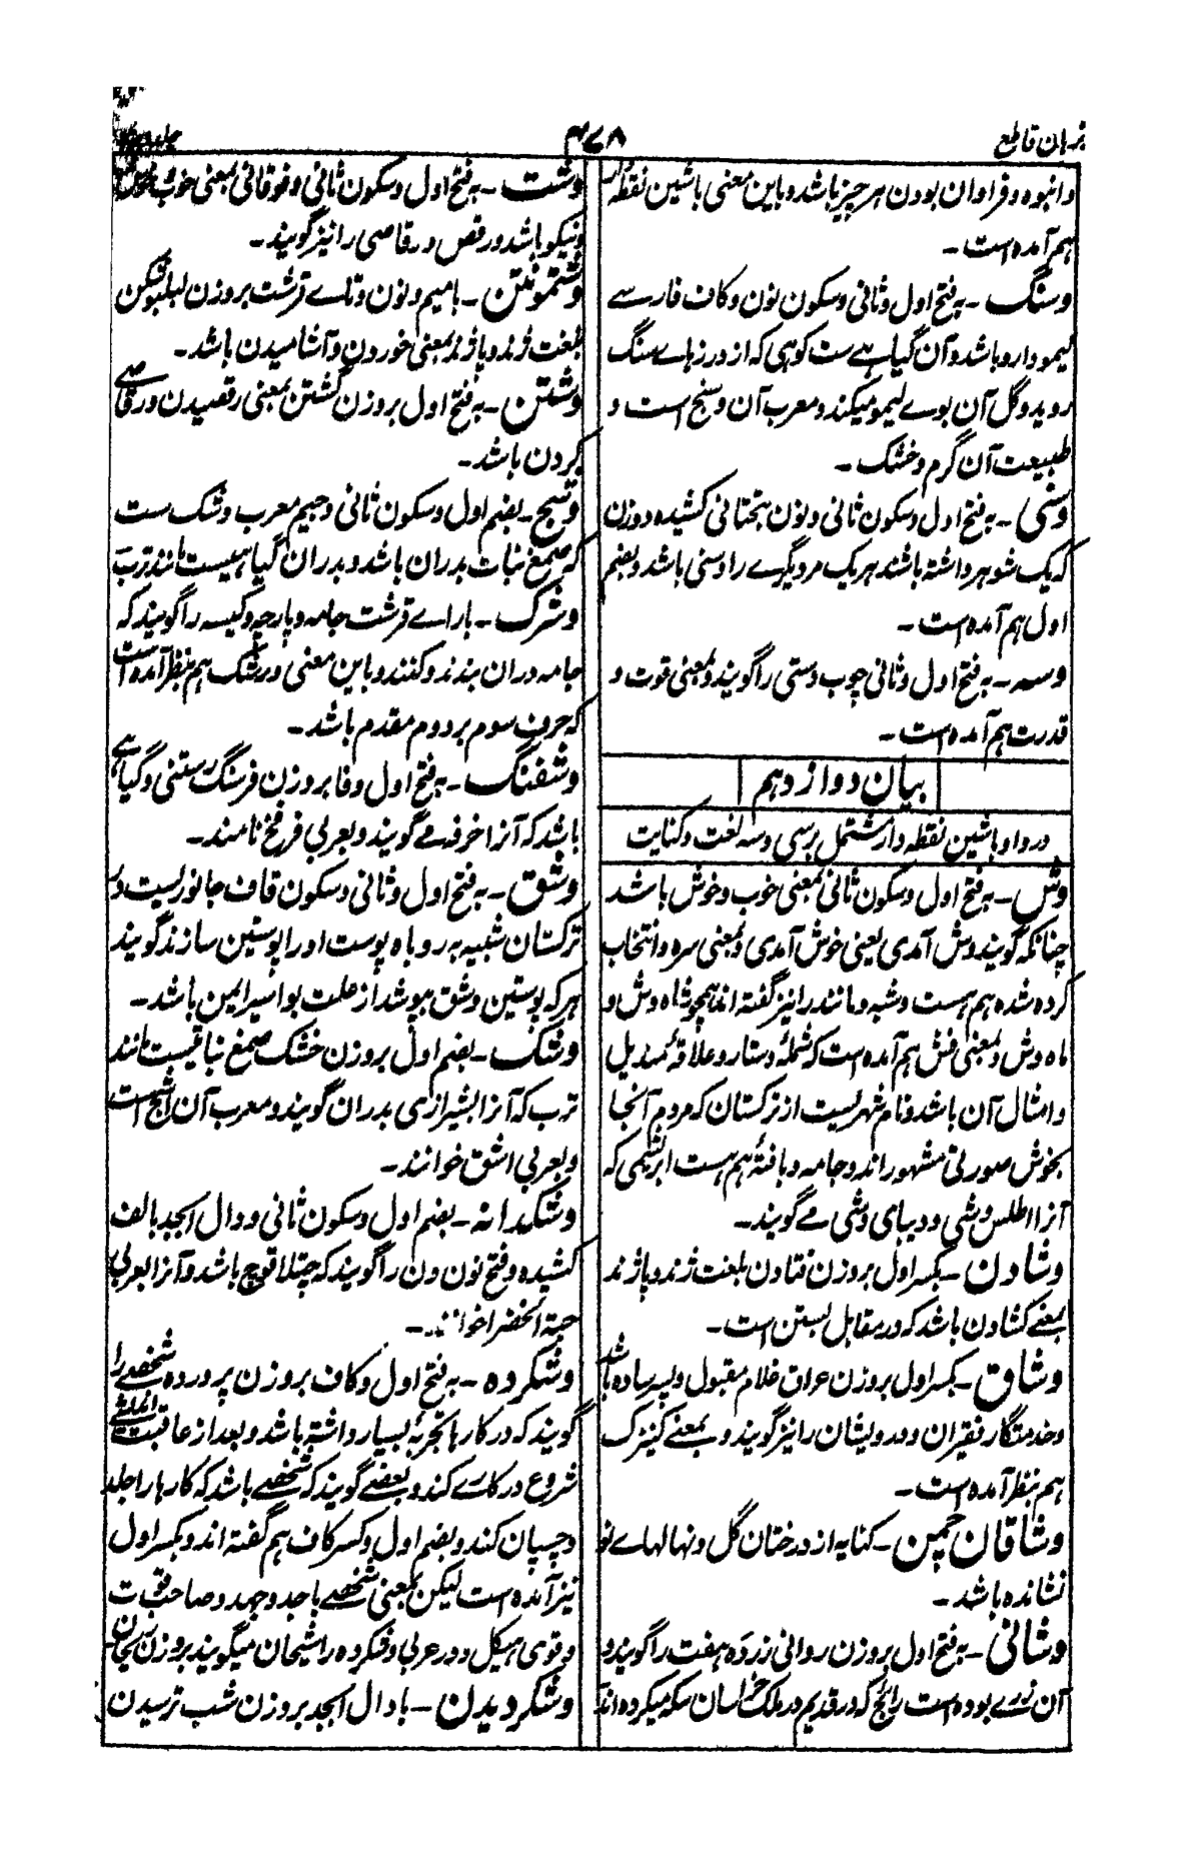 برهان قاطع
۴۷۸
وانبوه و فراوان بودن هر چیز باشد و باین معنی باشین نقطه
هم آمده است ۔
وسنگ ۔ بفتح اول و ثانی و سکون نون و کاف فارسے
لیمو دارو باشد و آن گیاہے ست کوهی که از درزہاے سنگ
روید و گل آن بوے لیمو میکند و معرب آن وسنج است و
طبیعت آن گرم و خشک ۔
وسنی ۔ بفتح اول و سکون ثانی و نون بتحتانی کشیده دوزن
که یک شوهر داشته باشند هر یک مر دیگرے را وسنی باشد و بضم
اول هم آمده است ۔
وسه ۔ بفتح اول و ثانی چوب دستی را گویند و بمعنی قوت و
قدرت هم آمده است ۔
بیان دوازدهم
در واو باشین نقطه دار مشتمل بر سی و سه لغت و کنایت
وش ۔ بفتح اول و سکون ثانی بمعنی خوب و خوش باشد
چنانکه گویند وش آمدی یعنی خوش آمدی و بمعنی سره و انتخاب
کرده شده هم هست و شبه و مانند را نیز گفته اند همچو شاه وش و
ماه وش و بمعنی فش هم آمده است که شملهٔ دستار و علاقهٔ مندیل
و امثال آن باشد و نام شهریست از ترکستان که مردم آنجا
بخوش صورتی مشهور اند و جامه و بافتهٔ هم هست ابریشمی که
آنرا اطلس وشی و دیبای وشی مے گویند ۔
وشادن ۔ بکسر اول بروزن فتادن بلغت ژند و پاژند
بمعنے کشادن باشد که در مقابل بستن است ۔
وشاق ۔ بکسر اول بروزن عراق غلام مقبول و پسر ساده باشد
و خدمتگار فقیران و درویشان را نیز گویند و بمعنے کنیزک
هم بنظر آمده است ۔
وشاقان چمن ۔ کنایه از درختان گل و نهالہاے نو
نشانده باشد ۔
وشانی ۔ بفتح اول بروزن روانی زر ده هفت را گویند و
آن زرے بوده است رایج که در قدیم در ملک خراسان سکه میکرده اند
وشت ۔ بفتح اول و سکون ثانی و فوقانی بمعنی خوب و خوش
و نیکو باشد و رقص و رقاصی را نیز گویند ۔
وشتمونتن ۔ با میم و نون و تاے قرشت بروزن
بلغت ژند و پاژند بمعنی خوردن و آشامیدن باشد ۔
وشتن ۔ بفتح اول بروزن گشتن بمعنی رقصیدن و رقاصے
کردن باشد ۔
وشج ۔ بضم اول و سکون ثانی و جیم معرب وشک ست
که صمغ نبات بدران باشد و بدران گیاهیست مانند ترب
وشرک ۔ با راے قرشت جامه و پارچه و کیسه را گویند که
جامه دران بندند و کنند و باین معنی ورشک هم بنظر آمده است
که حرف سوم بر دوم مقدم باشد ۔
وشفنگ ۔ بفتح اول و فا بروزن فرسنگ رستنی و گیاہے
باشد که آنرا خرفه مے گویند و بعربی فرفخ نامند ۔
وشق ۔ بفتح اول و ثانی و سکون قاف جانوریست در
ترکستان شبیه بروباه پوست او را پوستین سازند گویند
هر که پوستین وشق بپوشد از علت بواسیر ایمن باشد ۔
وشک ۔ بضم اول بروزن خشک صمغ نباتیست مانند
ترب که آنرا بشیرازی بدران گویند و معرب آن وشج است
و بعربی اشق خوانند ۔
وشکدانه ۔ بضم اول و سکون ثانی و دال ابجد بالف
کشیده و فتح نون ون را گویند که چتلاقوچ باشد و آنرا بعربی
حبة الخضرا خوانند ۔
وشکرده ۔ بفتح اول و کاف بروزن پرورده شخصے را
گویند که در کارها تجربهٔ بسیار داشته باشد و بعد از عاقبت اندیشے
شروع در کارے کند و بعضے گویند که شخصے باشد که کارها را جلد
و چسپان کند و بضم اول و کسر کاف هم گفته اند و بکسر اول
نیز آمده است لیکن بمعنی شخصے با جد و جهد و صاحب قوت
و قوی هیکل و در عربی وشکرده را شیحان میگویند بروزن
وشکردیدن ۔ با دال ابجد بروزن شب ترسیدن